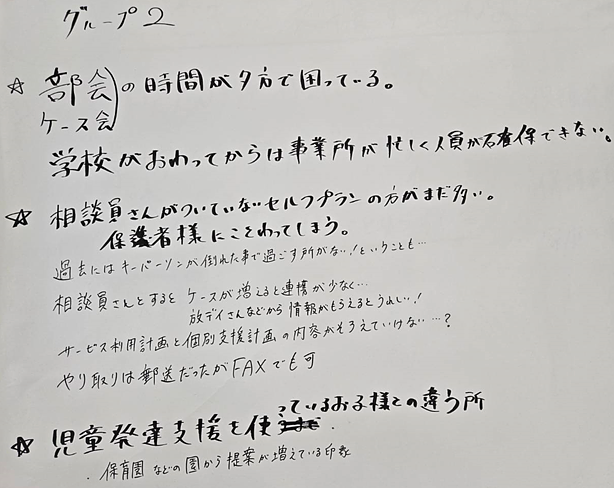 グループ2
☆ 部会
ケース会
の時間が夕方で困っている。
学校がおわってからは事業所が忙しく人員が確保できない。
☆ 相談員さんがついていないセルフプランの方がまだ多い。
保護者様にことわってしまう。
過去にはキーパーソンが倒れた事で過ごす所がない!ということも…
相談員さんとするとケースが増えると連携が少なく…
放デイさんなどから情報がもらえるとうれしい!
サービス利用計画と個別支援計画の内容がそろえていけない…?
やり取りは郵送だったがFAXでも可
☆ 児童発達支援を使っているお子様との違う所
・保育園などの園から提案が増えている印象